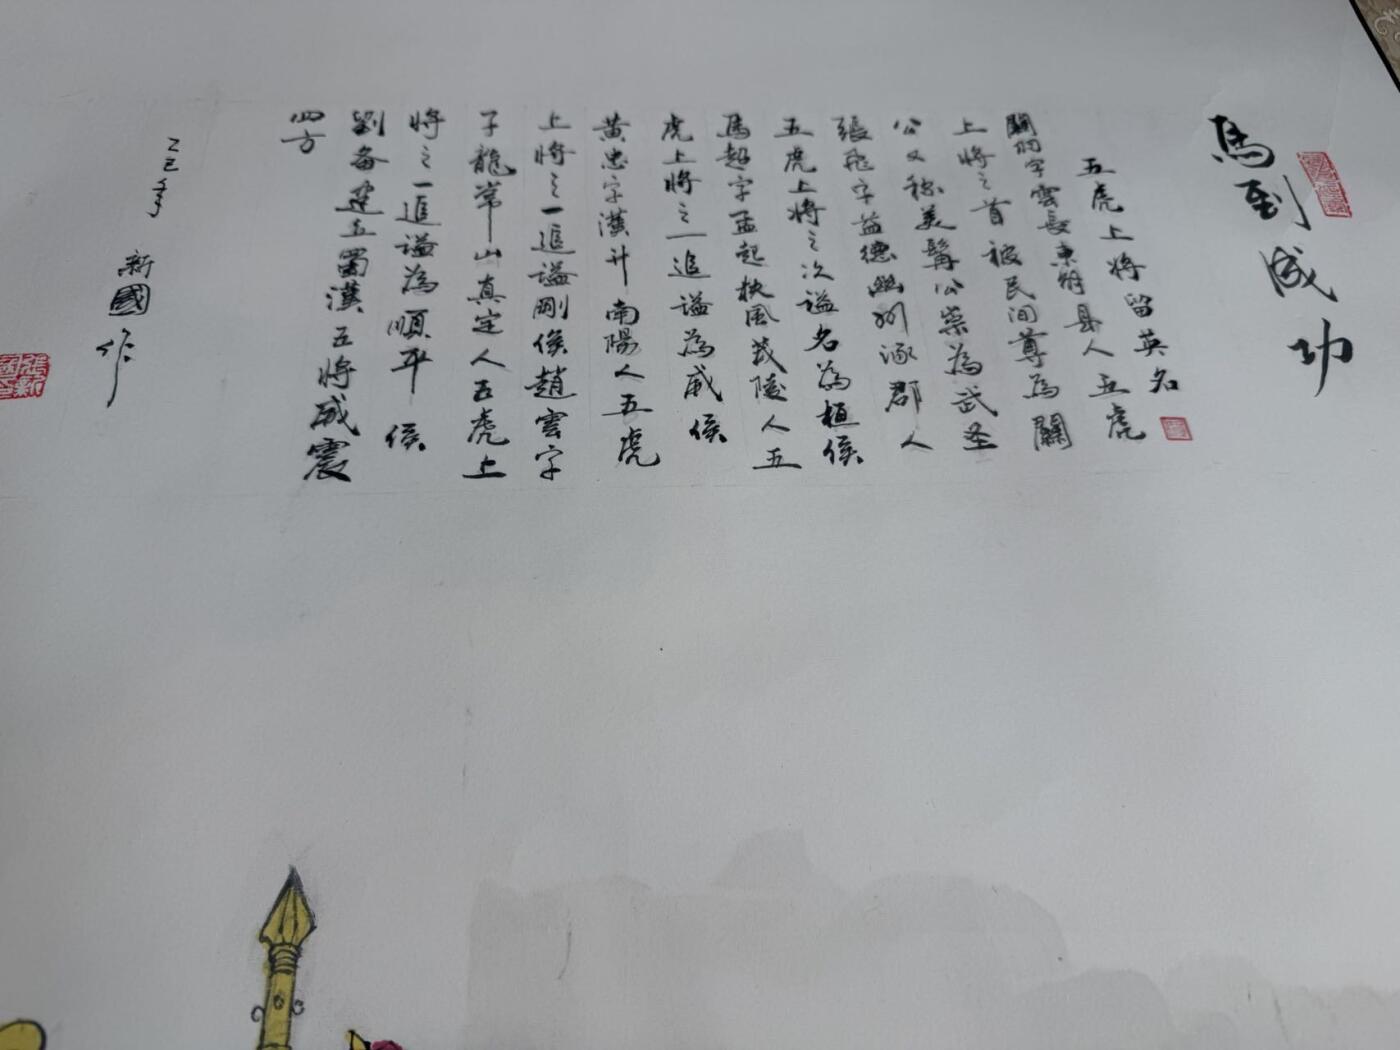 馬到成功
五虎上將留英名
關羽字雲長東解县人五虎
上將之首被民间尊為關
公又称美髯公崇為武圣
張飛字益德幽州涿郡人
五虎上將之次谥名為桓侯
馬超字孟起扶風茂陵人五
虎上將之一追谥為威侯
黄忠字漢升南陽人五虎
上將之一追谥剛侯趙雲字
子龍常山真定人五虎上
將之一追谥為順平侯
劉备建立蜀漢五將威震
四方
乙巳年
新國作